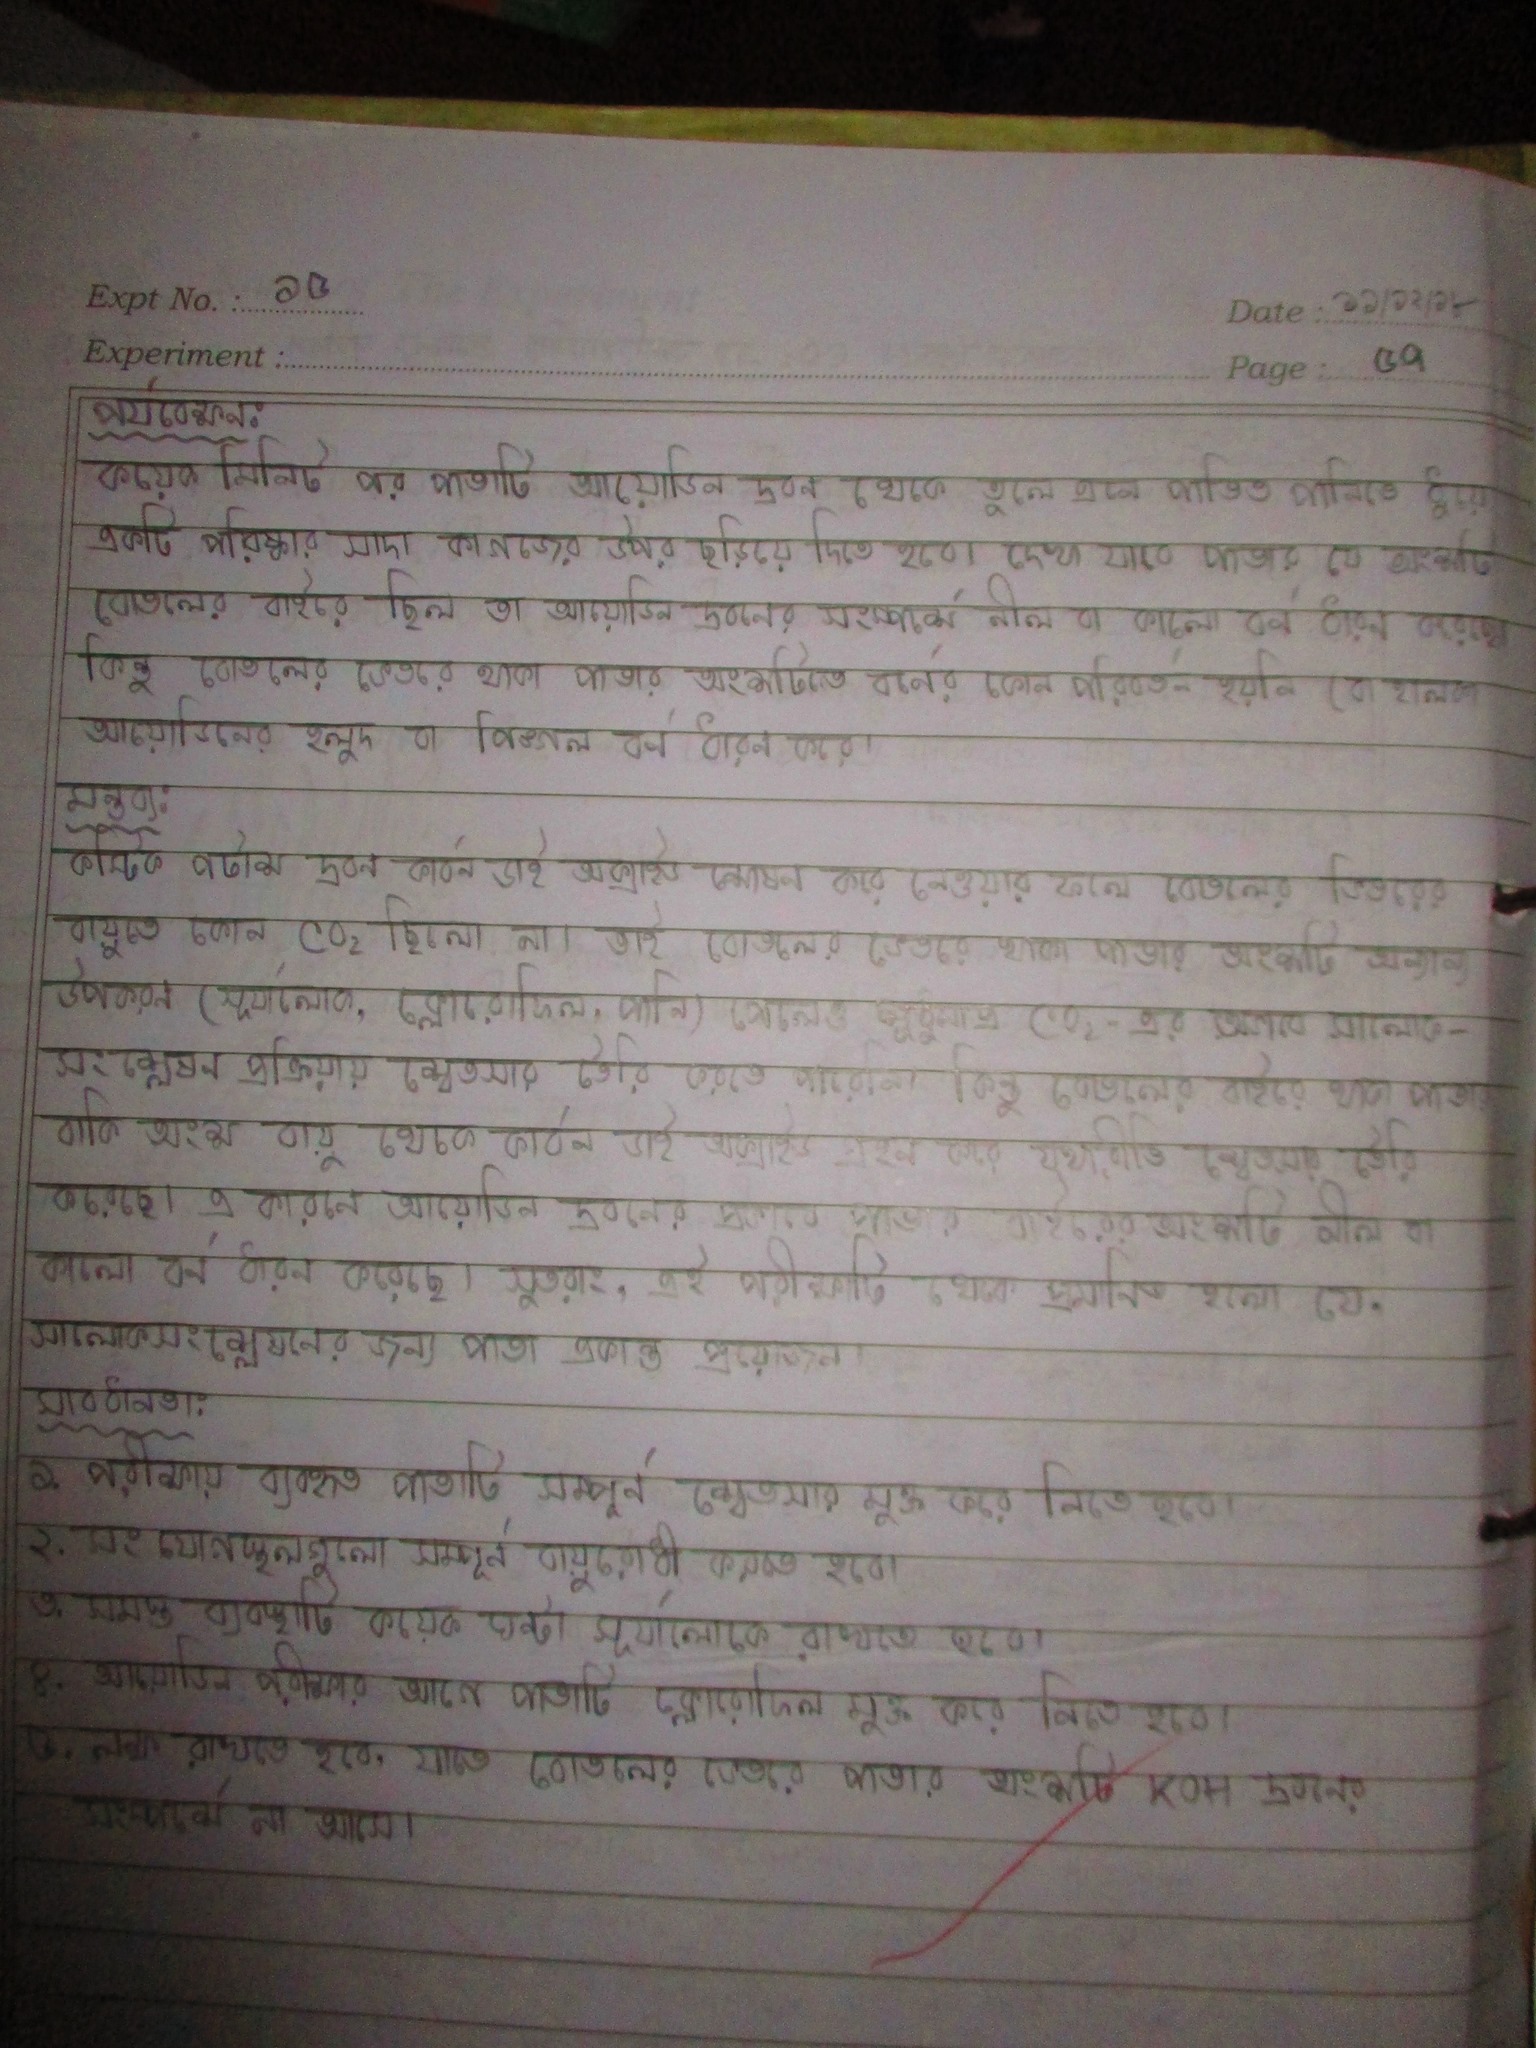 Expt No. : ১৫
Date : ১১/১২/১৮
Experiment :
Page : ৫৭
পর্যবেক্ষন:
কয়েক মিনিট পর পাতাটি আয়োডিন দ্রবন থেকে তুলে এনে পাতিত পানিতে ধুয়ে
একটি পরিষ্কার সাদা কাগজের উপর ছড়িয়ে দিতে হবে। দেখা যাবে পাতার যে অংশটি
বোতলের বাইরে ছিল তা আয়োডিন দ্রবনের সংস্পর্শে নীল বা কালো বর্ন ধারন করেছে
কিন্তু বোতলের ভেতরে থাকা পাতার অংশটিতে বর্নের কোন পরিবর্তন হয়নি (বা হালকা
আয়োডিনের হলুদ বা পিঙ্গল বর্ন ধারন করে।
মন্তব্য:
কস্টিক পটাশ দ্রবন কার্বন ডাই অক্সাইড শোষন করে নেওয়ার ফলে বোতলের ভিতরের
বায়ুতে কোন CO₂ ছিলো না। তাই বোতলের ভেতরে থাকা পাতার অংশটি অন্যান্য
উপকরন (সূর্যালোক, ক্লোরোফিল, পানি) পেলেও শুধুমাত্র CO₂-এর অভাবে সালোক-
সংশ্লেষন প্রক্রিয়ায় শ্বেতসার তৈরি করতে পারেনি। কিন্তু বোতলের বাইরে থাকা পাতার
বাকি অংশ বায়ু থেকে কার্বন ডাই অক্সাইড গ্রহন করে যথারীতি শ্বেতসার তৈরি
করেছে। এ কারনে আয়োডিন দ্রবনের প্রভাবে পাতার বাইরের অংশটি নীল বা
কালো বর্ন ধারন করেছে। সুতরাং, এই পরীক্ষাটি থেকে প্রমানিত হলো যে,
সালোকসংশ্লেষনের জন্য পাতা একান্ত প্রয়োজন।
সাবধানতা:
১. পরীক্ষায় ব্যবহৃত পাতাটি সম্পূর্ন শ্বেতসার মুক্ত করে নিতে হবে।
২. সংযোগস্থলগুলো সম্পূর্ন বায়ুরোধী করতে হবে।
৩. সমস্ত ব্যবস্থাটি কয়েক ঘন্টা সূর্যালোকে রাখতে হবে।
৪. আয়োডিন পরীক্ষার আগে পাতাটি ক্লোরোফিল মুক্ত করে নিতে হবে।
৫. লক্ষ রাখতে হবে, যাতে বোতলের ভেতরে পাতার অংশটি KOH দ্রবনের
সংস্পর্শে না আসে।